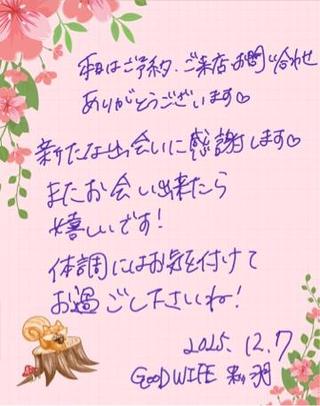 本日はご予約、ご来店、お問い合わせ
ありがとうございます♡
新たな出会いに感謝します♡
またお会い出来たら
嬉しいです!
体調にはお気を付けて
お過ごし下さいね!
2025.12.7
GOOD WIFE